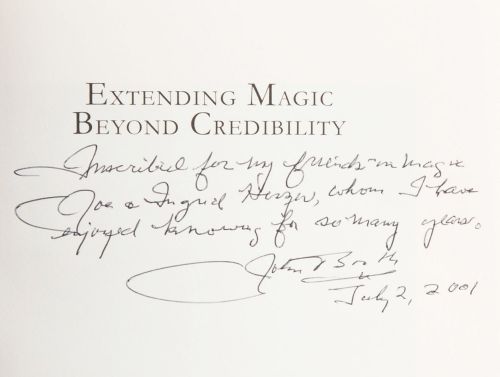 EXTENDING MAGIC
BEYOND CREDIBILITY
Inscribed for my friends in magic
Joe & Ingrid Herzer, whom I have
enjoyed knowing for so many years.
John Booth
July 2, 2001